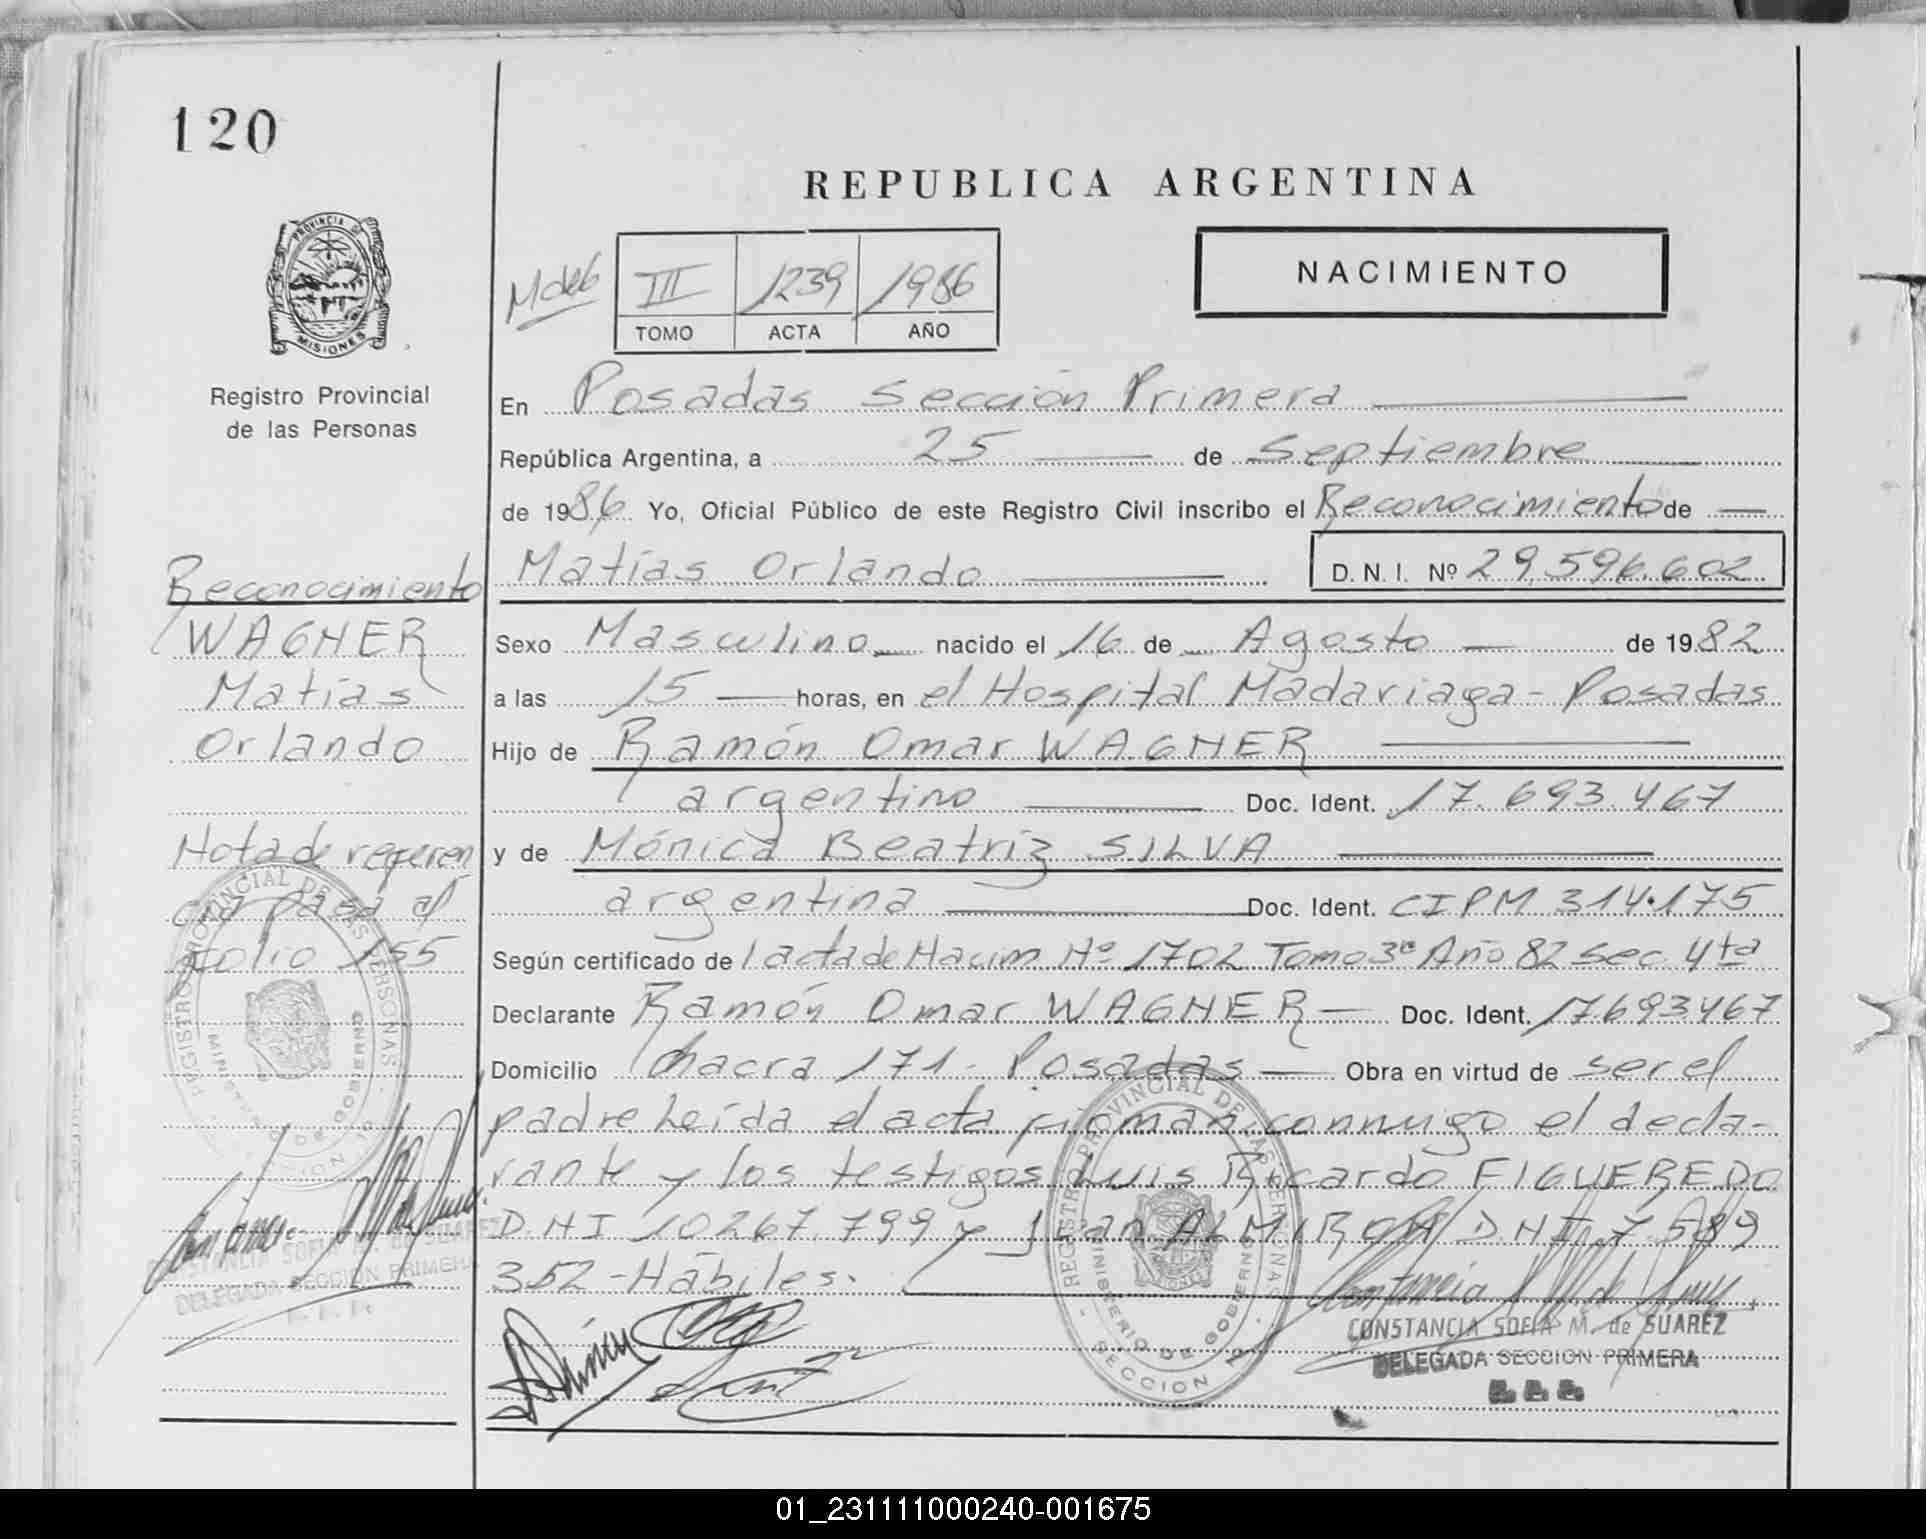 120
REPUBLICA ARGENTINA
PROVINCIA DE
MISIONES
Registro Provincial
de las Personas
III 1239 1986
TOMO ACTA AÑO
NACIMIENTO
En Posadas sección Primera
República Argentina, a 25 de Septiembre
de 1986 Yo, Oficial Público de este Registro Civil inscribo el Reconocimiento de
Matías Orlando D.N.I. Nº 29.596.602
Sexo Masculino nacido el 16 de Agosto de 1982
a las 15 horas, en el Hospital Madariaga - Posadas
Hijo de Ramón Omar WAGNER
argentino Doc. Ident. 17.693.467
y de Mónica Beatriz SILVA
argentina Doc. Ident. CIPM 314.175
Según certificado de lactade Nacim Nº 1702 Tomo 3º Año 82 sec 4ta
Declarante Ramón Omar WAGNER Doc. Ident. 17693467
Domicilio Chacra 171 - Posadas Obra en virtud de ser el
padre Leída el acta firman conmigo el decla-
rante y los testigos Luis Ricardo FIGUEREDO
D.N.I 10267.799 y Juan ALMIRON D.N.I. 7.589
352 - Hábiles.
Reconocimiento
WAGNER
Matías
Orlando
Nota de referen
cia pasa al
folio 155
REGISTRO PROVINCIAL DE LAS PERSONAS
MINISTERIO DE GOBIERNO
SECCION
REGISTRO PROVINCIAL DE LAS PERSONAS
MINISTERIO DE GOBIERNO
SECCION
CONSTANCIA SOFIA M. de SUAREZ
DELEGADA SECCION PRIMERA
CONSTANCIA SOFIA M. de SUAREZ
DELEGADA SECCION PRIMERA
01_231111000240-001675